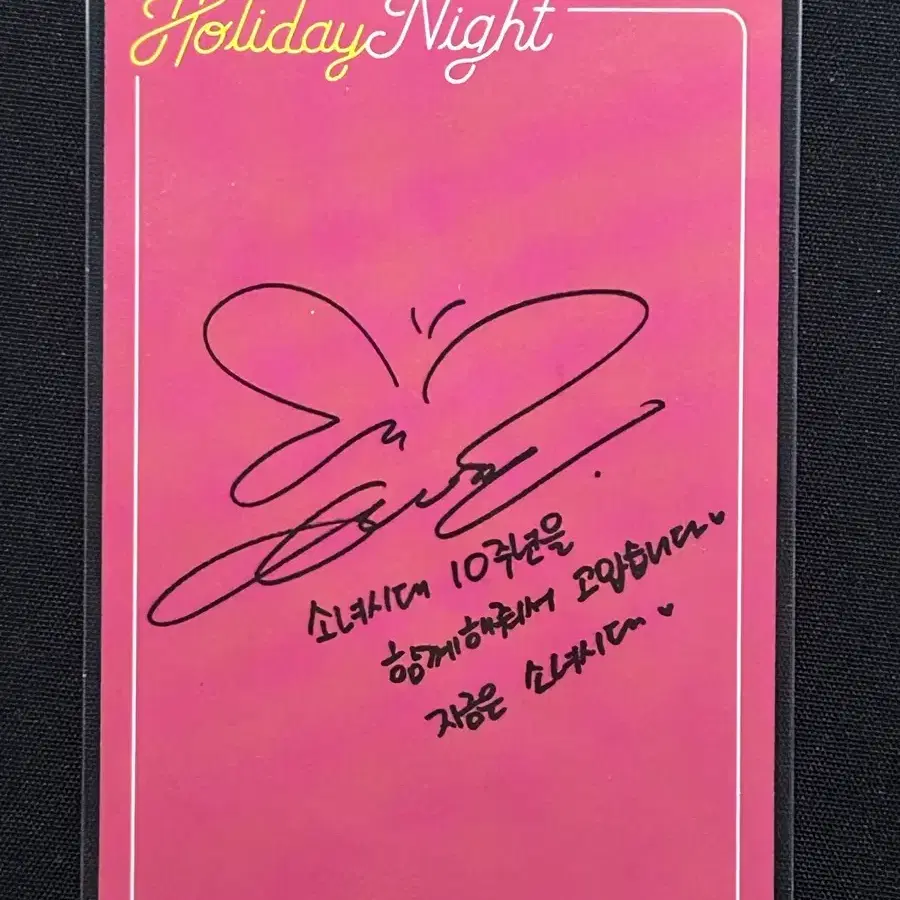 Holiday Night
소녀시대 10주년을
함께해줘서 고맙습니다♥
지금은 소녀시대♥